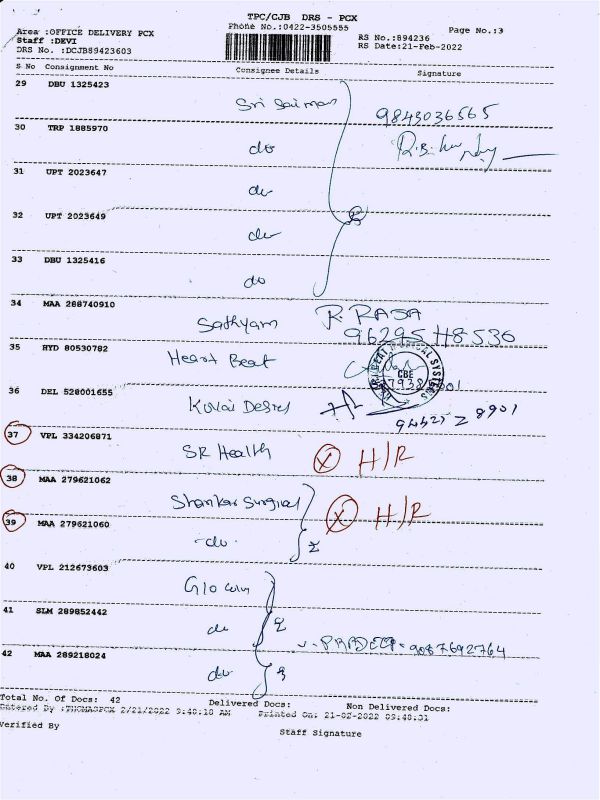 TPC/CJB DRS - PCX
Phone No.:0422-3505555
Page No.:3
Area :OFFICE DELIVERY PCX
Staff :DEVI
DRS No. :DCJB89423603
RS No.:894236
RS Date:21-Feb-2022
S No Consignment No Consignee Details Signature
29 DBU 1325423
Sri Saimas 9843036565
30 TRP 1885970
do
31 UPT 2023647
do
32 UPT 2023649
do
33 DBU 1325416
do
34 MAA 288740910
Sathyam R. RAJA
96295 48536
35 HYD 80530782
Heart Beat
CBE
36 DEL 528001655
Kovai
37 VPL 334206871
SR Health X H/R
38 MAA 279621062
Shankar Surgical X H/R
39 MAA 279621060
-do-
2
40 VPL 212673603
Glo
41 SLM 289852442
do 2
PRADEEP - 9087692764
42 MAA 289218024
do 2
Total No. Of Docs: 42 Delivered Docs: Non Delivered Docs:
Entered By :THOMASPCX 2/21/2022 9:48:18 AM Printed On: 21-02-2022 09:48:31
Verified By
Staff Signature